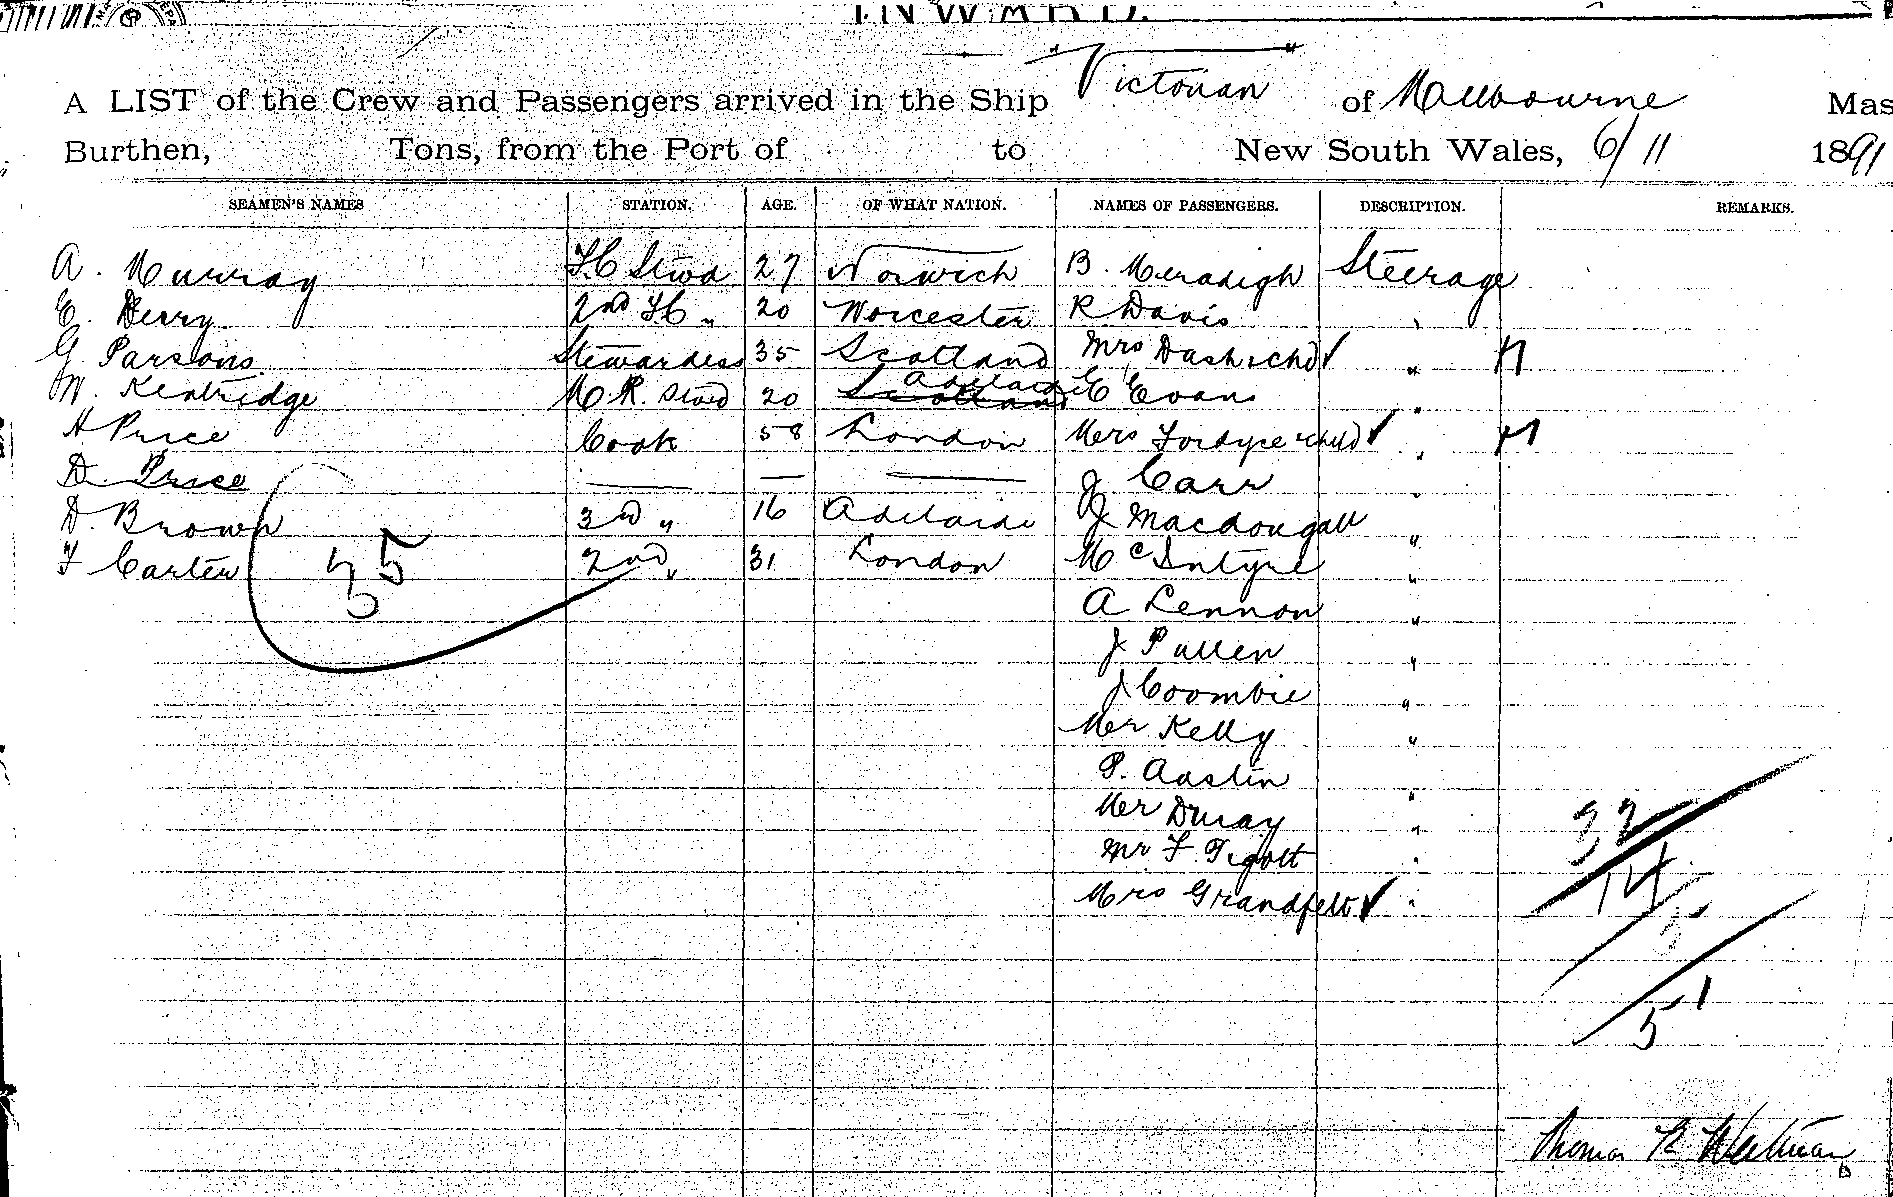 INWARD.
A LIST of the Crew and Passengers arrived in the Ship Victorian of Melbourne Mas
Burthen, Tons, from the Port of to New South Wales, 6/11 1891
SEAMEN'S NAMES STATION. AGE. OF WHAT NATION. NAMES OF PASSENGERS. DESCRIPTION. REMARKS.
A. Murray 27 Norwich B. Steerage
E. Derry 2nd 20 Worcester R Davis "
G Parsons. Stewardess 35 Scotland Mrs & chd ✓ "
20 Scotland Adelaide E Evans "
H Price Cook 58 London Mrs Fordyce & child ✓ "
D. Price — — — J Carr "
D. Brown 3rd " 16 Adelaide J Macdougall "
F Carter 2nd " 31 London McIntyre "
35 A Lennon "
J Pullen "
J Coombie "
Mr Kelly "
P. Austin "
Mr "
Mr F. Pigott "
Mrs Grandfelt ✓ "
32
14
5
51
Thomas